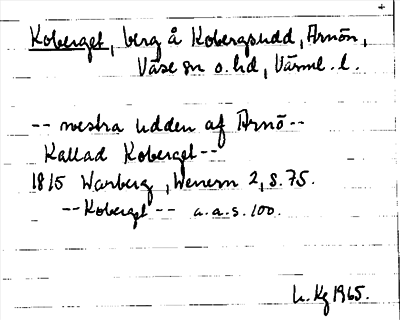 Koberget, berg å Kobergsudd, Arnön,
Väse sn o. hd, Värml. l.
-- westra udden af Arnö --
Kallad Koberget --
1815 Warberg, Wenern 2, s. 75.
-- Koberget -- a.a. s. 100.
L. Kg 1965.